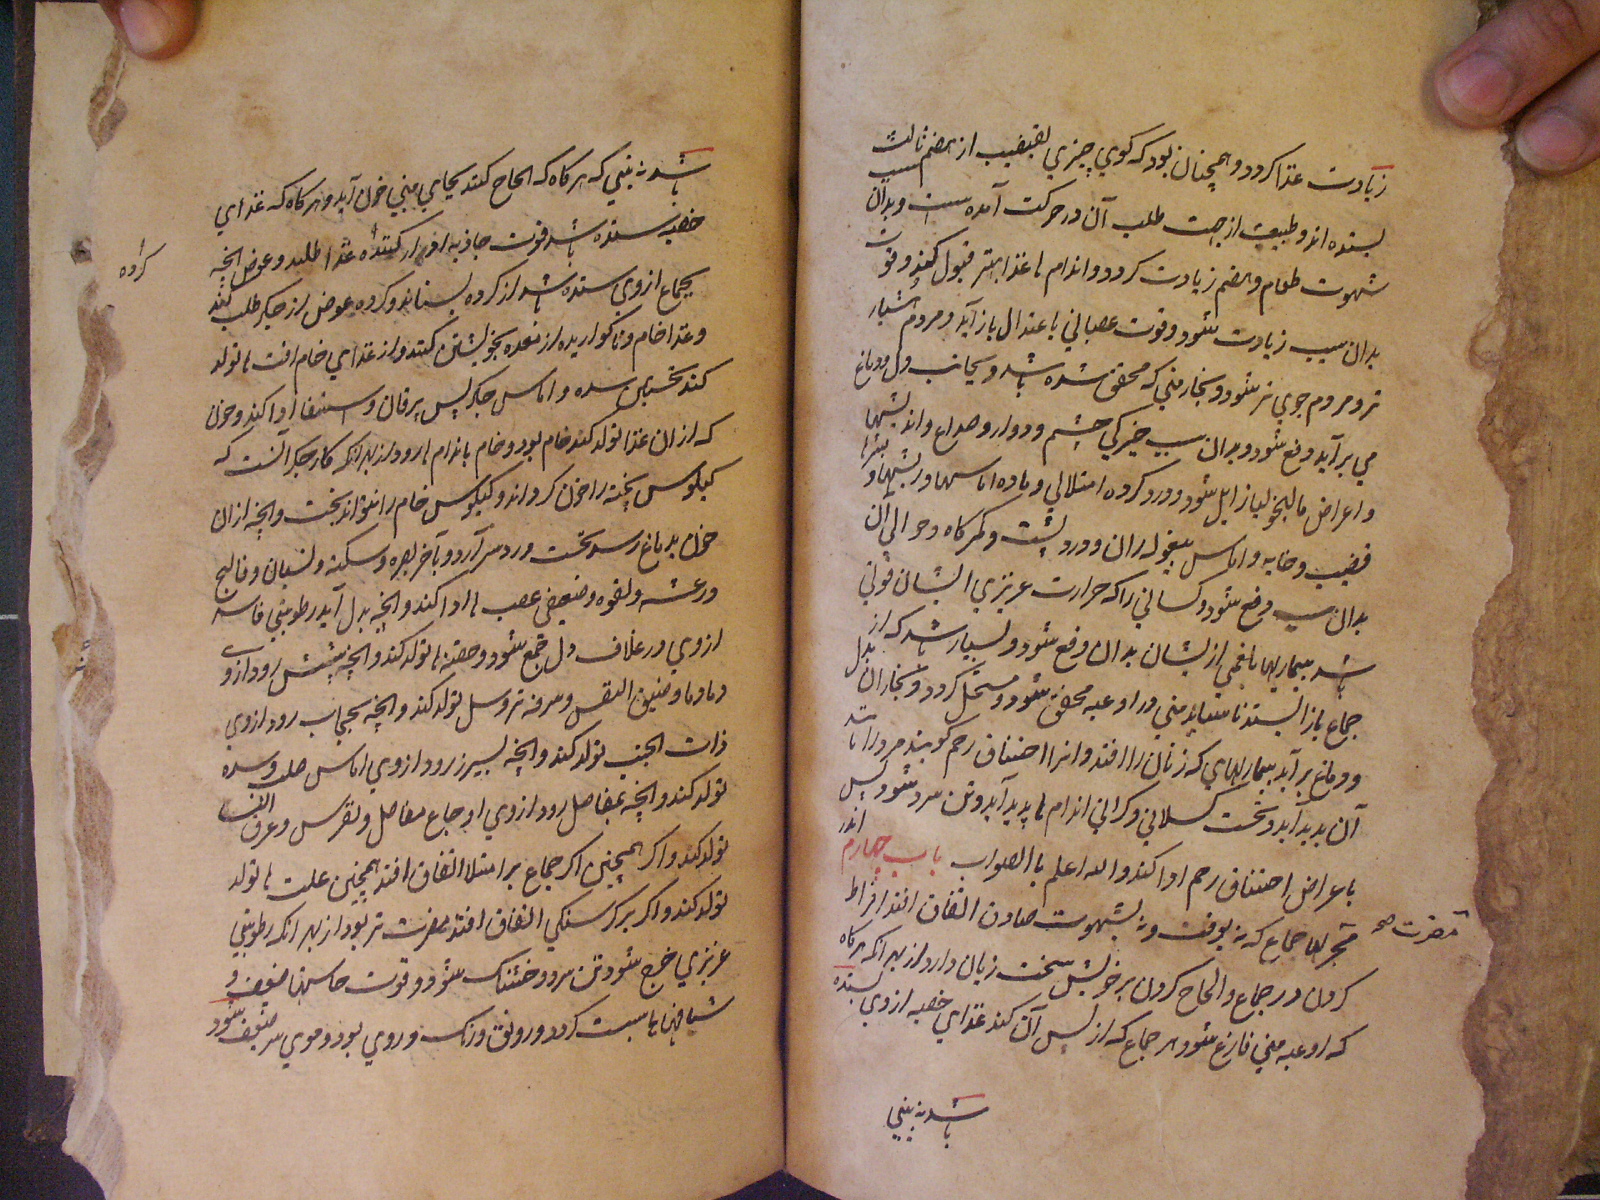 زیادت غذا کردد و همچنان بود که کوي چیزي لقضیب از هضم ثالث
بستده اند و طبیعت از جهت طلب آن در حرکت آمده است و بدان سبب
شهوت طعام و هضم زیادت کردد و اندام ها غذا بهتر قبول کند و قوت
بدان سبب زیادت شود و قوت عصباني باعتدال باز آید و مردم هشیار
تر و مردم جوي تر شود و بخار مني که محقن شده باشد و بجانب دل و دماغ
مي بر آید دفع شود و بدان سبب خیرکي چشم و دوار و صداع و اندیشها
و اعراض مالیخولیا زایل شود و درد کرده امتلائي و ماده اماسها در
قضیب و خایه و اماس بیغوله ران و درد پشت و کمرکاه و حوالي آن
بدان سبب دفع شود و کساني را که حرارت عزیزي ایشان قوي
باشد بیماریها بلغمي از ایشان بدان دفع شود و بسیار باشد که از
جماع باز ایستد تا مني در اوعیه محقن شود و مستحیل کردد و بخار آن بدل
و دماغ بر آید بیماریهاي که زنان را افتد و انرا اختناق رحم کویند مرد را مانند
آن پدید آید و نخست کسلاني و کراني اندام ها پدید آید و تن سرد شود پس
باعراض اختناق رحم ادا کند والله اعلم بالصواب باب چهارم اندر
مضرت صح
جماع که نه بوقت و نه بشهوت صادق اتفاق افتد افراط
کردن در جماع و الحاح کردن بر خویش سخت زیان دارد از بهر انکه هرکاه
که اوعیه مني فارغ شود هر جماع که از پس آن کند غذاي خصیه از وي بستده
باشد نه بیني
باشد نه بیني که هرکاه که الحاح کنند بجاي مني خون آید و هرکاه که غذاي
خصیه ستده باشد قوت جاذبه غذا طلبد و عوض انچه
کرده
بجماع از وي ستده باشد از کرده بستاند و کرده عوض از جکر طلب کند
و غذا خام و ناکواریده از معده بخویشتن کشد و از غذاي خام افت ها تولد
کند نخستین سده و اماس جکر پس یرقان و استسقا ادا کند و خون
که از ان غذا تولد کند خام بود و خام باندام ها رود از بهر انکه کار جکر آنست که
کیلوس پخته را خون کرداند و کیلوس خام را نتواند پخت و انچه از ان
خون بدماغ رسد نخست درد سر آرد و بآخر و سکته و نسیان و فالج
و رعشه و لقوه و ضعیفي عصب ها ادا کند و انچه بدل آید رطوبتي فاسد
از وي در غلاف دل جمع شود و خفقان ها تولد کند و انچه بشش رود از وي
و ضیق النفس و سرفه تر و سل تولد کند و انچه بحجاب رود از وي
ذات الجنب تولد کند و انچه بسپرز رود از وي اماس صلب و سده
تولد کند و انچه بمفاصل رود از وي اوجاع مفاصل و نقرس و عرق النسا
تولد کند و اکر همچنین اکر جماع بر امتلا اتفاق افتد همچنین علت ها تولد
تولد کند و اکر بر کرسنکي اتفاق افتد مضرت تر بود از بهر انکه رطوبتي
عزیزي خرج شود و تن سرد و خشک شود و قوت حاستها ضعیف و
ساقها سست کردد و رونق و رنک و روي بود و موي سر ضعیف شود